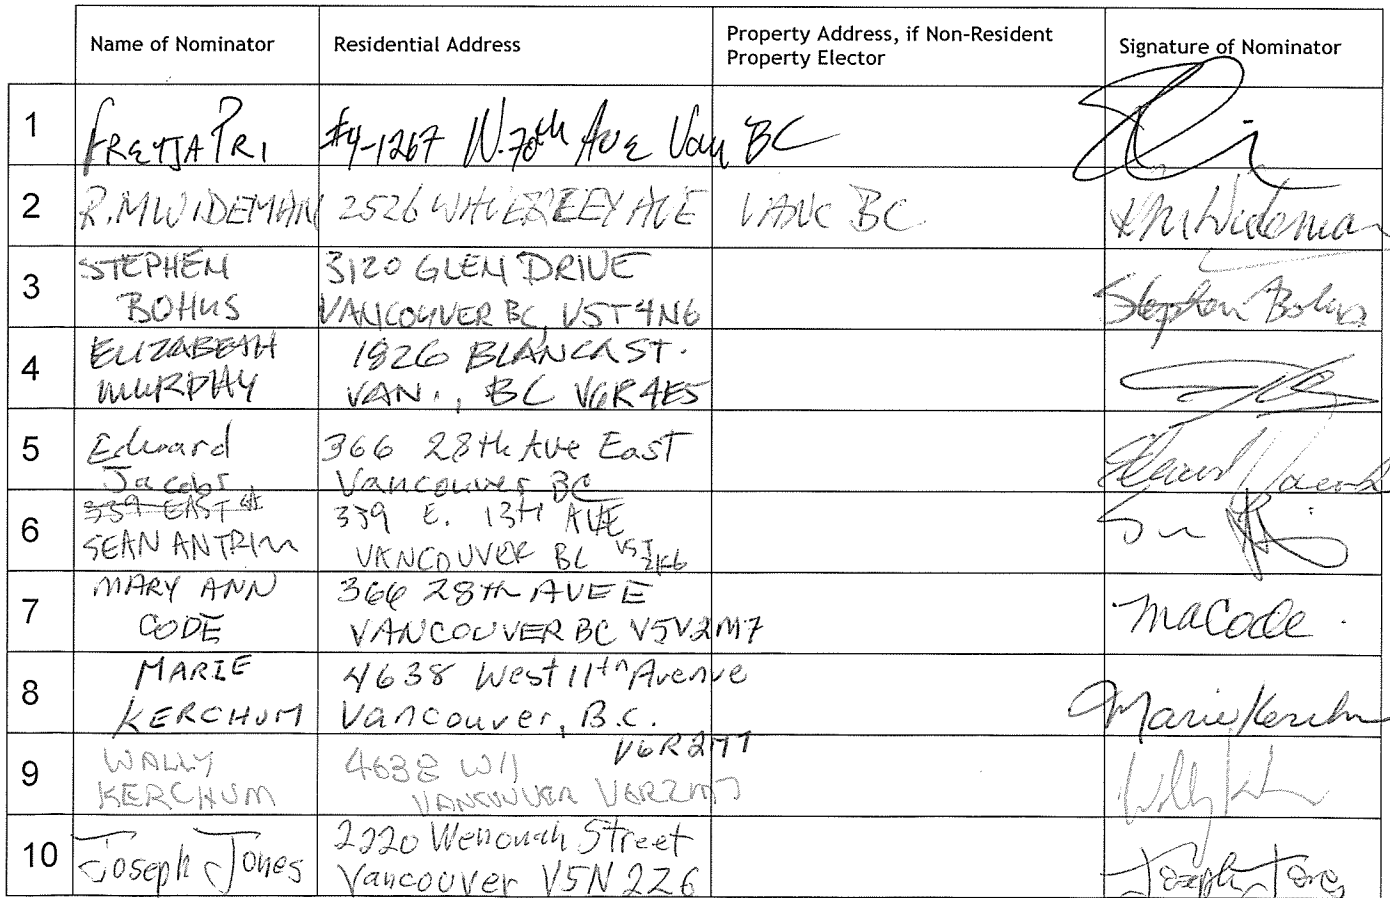 Name of Nominator
Residential Address
Property Address, if Non-Resident
Property Elector
Signature of Nominator
1
FREYJA PRI
#4-1267 W. 70th Ave Van BC
2
R.M WIDEMAN
2526 AVE
VANC BC
RM Wideman
3
STEPHEN
BOHUS
3120 GLEN DRIVE
VANCOUVER BC, V5T4N6
Stephen Bohus
4
ELIZABETH
MURPHY
1826 BLANCA ST.
VAN., BC V6R4E5
5
Edward
Jacobs
366 28th Ave East
Vancouver BC
Edward Jacobs
6
339 EAST
SEAN ANTRIM
339 E. 13TH AVE
VANCOUVER BC V5T
2K6
7
MARY ANN
CODE
366 28TH AVE E
VANCOUVER BC V5V2M7
MaCode.
8
MARIE
KERCHUM
4638 West 11th Avenue
Vancouver, B.C.
V6R2M7
Marie Kerchum
9
WALLY
KERCHUM
4638 W11
VANCOUVER V6R2M7
10
Joseph Jones
2220 Street
Vancouver V5N 2Z6
Joseph Jones